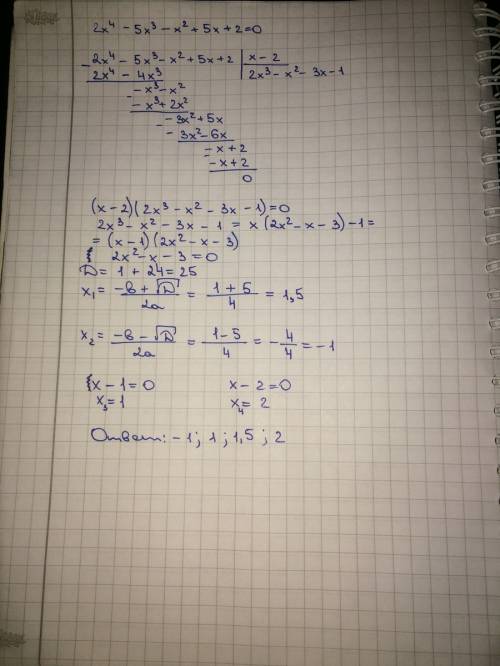 2x⁴ - 5x³ - x² + 5x + 2 = 0
- 2x⁴ - 5x³ - x² + 5x + 2 | x - 2
2x⁴ - 4x³ | 2x³ - x² - 3x - 1
- - x³ - x²
- x³ + 2x²
- - 3x² + 5x
- 3x² - 6x
- - x + 2
- x + 2
0
(x - 2)(2x³ - x² - 3x - 1) = 0
2x³ - x² - 3x - 1 = x(2x² - x - 3) - 1 =
= (x - 1)(2x² - x - 3)
2x² - x - 3 = 0
D = 1 + 24 = 25
x₁ = (-в + √D)/2a = (1 + 5)/4 = 1,5
x₂ = (-в - √D)/2a = (1 - 5)/4 = -4/4 = -1
x - 1 = 0 x - 2 = 0
x₃ = 1 x₄ = 2
Ответ: -1; 1; 1,5; 2